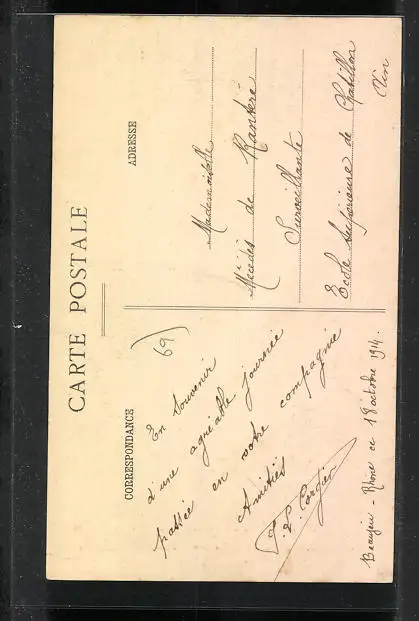 CARTE POSTALE
CORRESPONDANCE
ADRESSE
69
En Souvenir
d'une agréable journée
passée en votre compagnie
Amitiés
Beaujeu - Rhône ce 18 octobre 1914.
Mademoiselle
de
Surveillante
École Supérieure de Chatillon
Ain